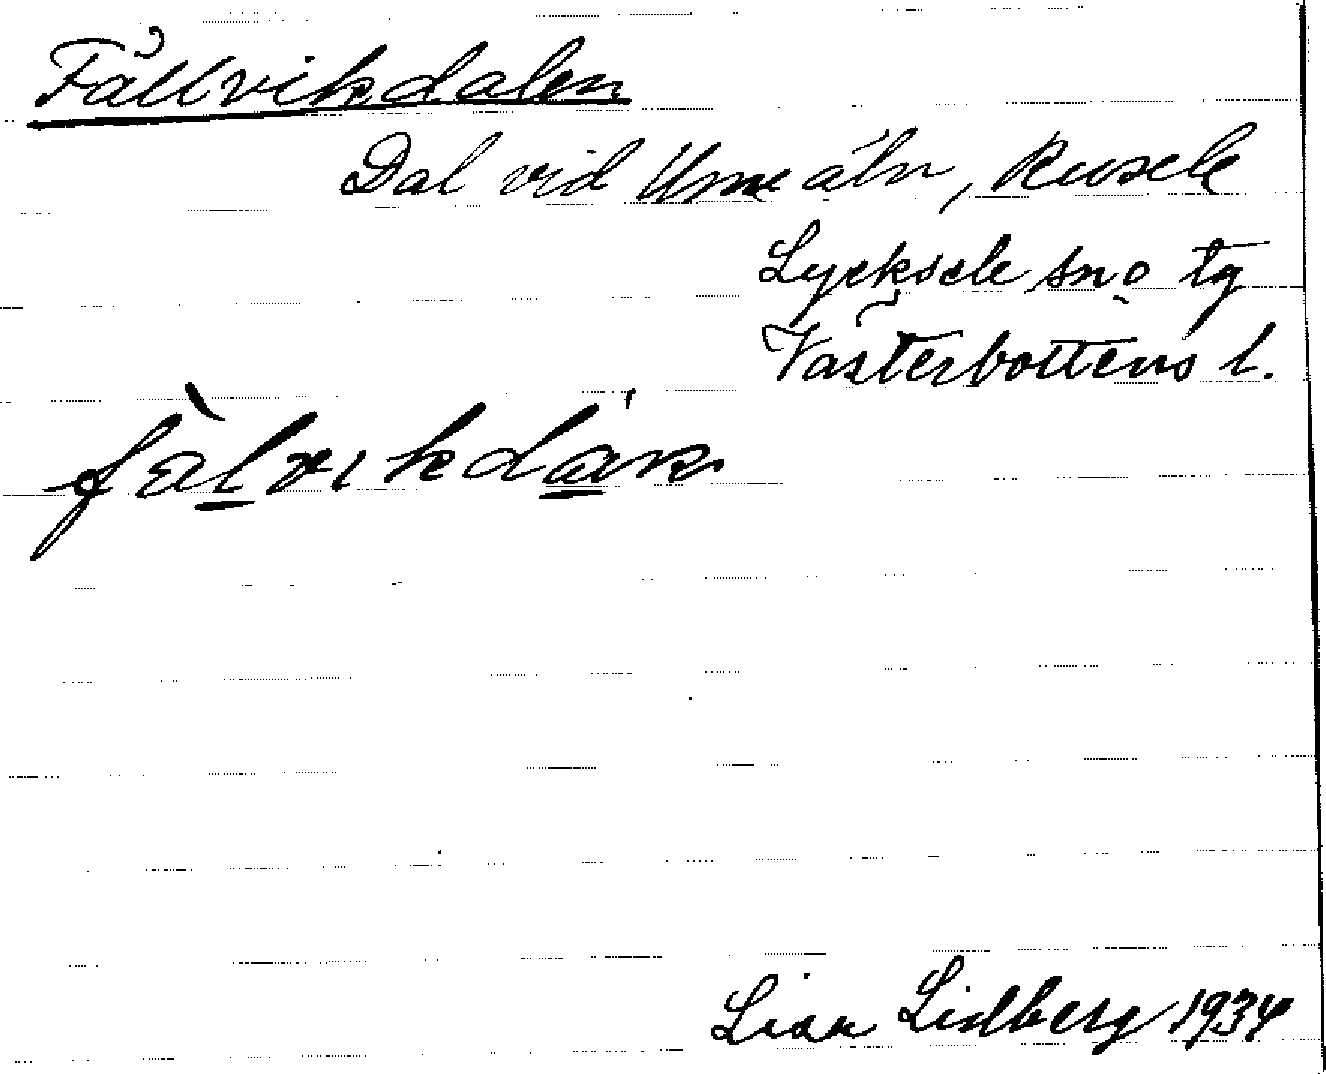 Fällvikdalen
Dal vid Umeälv, Rusele
Lycksele sno tg
Västerbottens l.
Lian Lidberg 1934